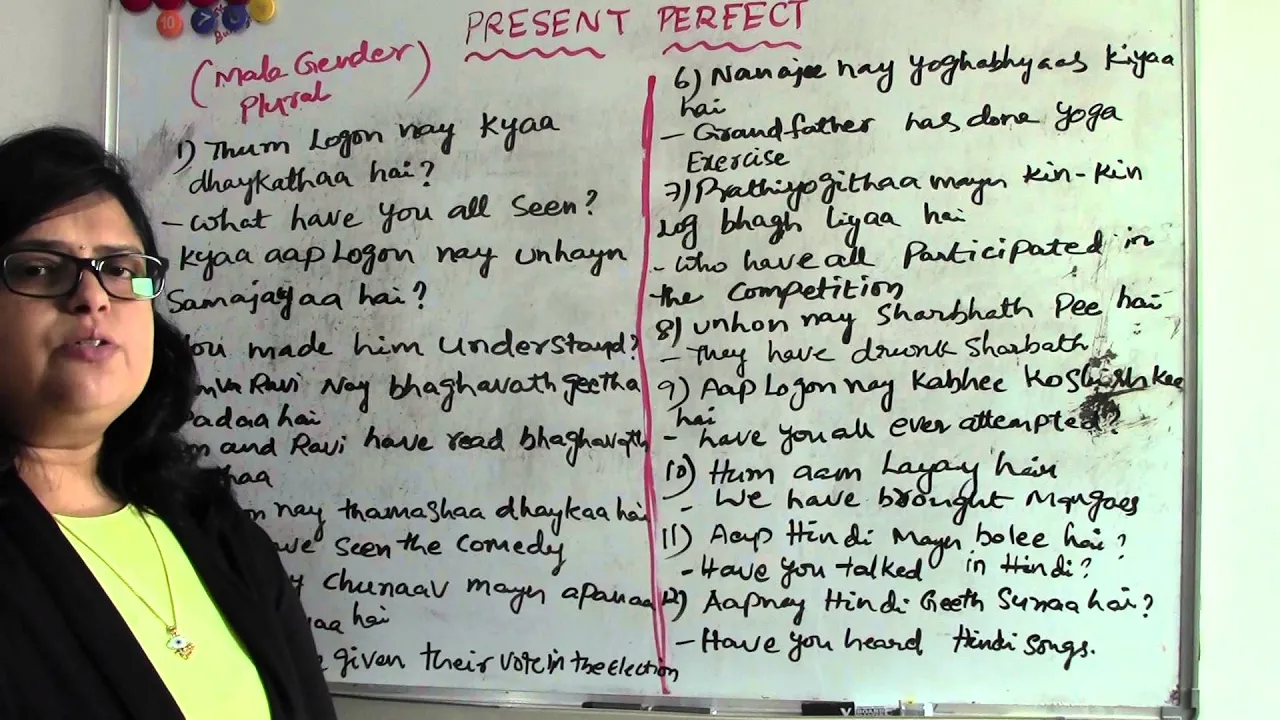 PRESENT PERFECT
(Male Gender)
Plural
1) Thum Logon nay Kyaa
dhaykathaa hai?
- What have you all seen?
Kyaa aap Logon nay unhayn
Samajayaa hai?
You made him understand?
Ravi nay bhaghavath geetha
Padaa hai
and Ravi have read bhaghavath
nay thamashaa dhaykaa hai
seen the comedy
Chunaav mayn apanaa
hai
given their vote in the election
6) Nanajee nay yoghabhyaas Kiyaa
hai
- Grandfather has done yoga
Exercise
7) Prathiyogithaa mayn Kin-Kin
Log bhagh Liyaa hai
- Who have all Participated in
the Competition
8) Unhon nay Sharbhath Pee hai
- They have drunk Sharbath
9) Aap Logon nay Kabhee Koshishkee
hai
- have you all ever attempted?
10) Hum aam Layay hain
- We have brought Mangoes
11) Aap Hindi Mayn bolee hai?
- Have you talked in Hindi?
12) Aapnay Hindi Geeth Sunaa hai?
- Have you heard Hindi Songs.
10